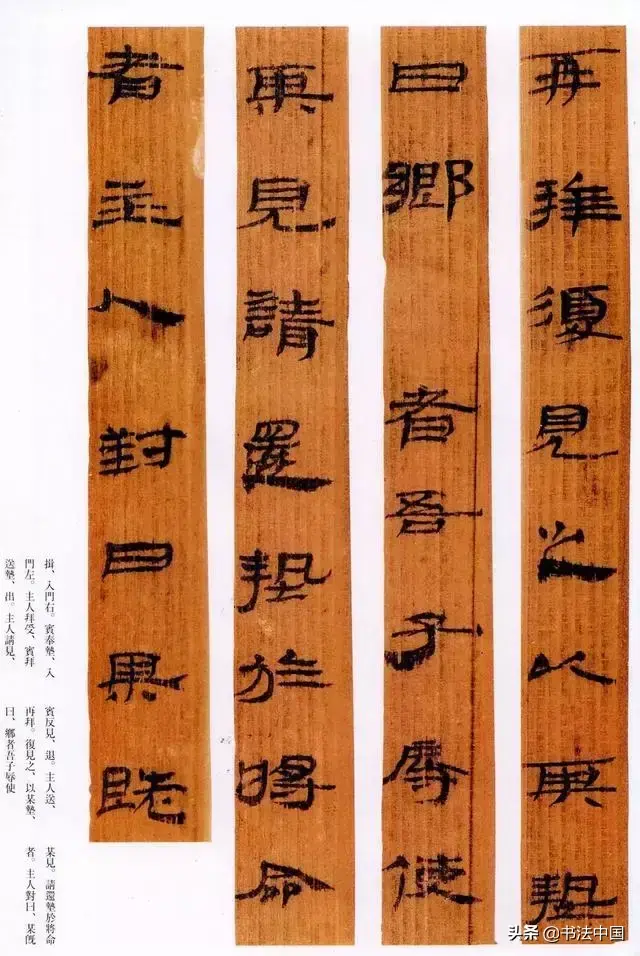 再拜復見之以某墊
曰鄉者吾子辱使
某見請還墊於將命
者主人對曰某旣
揖、入門右。賓奉墊、入
門左。主人拜受、賓拜
送墊、出。主人請見、
賓反見、退。主人送、
再拜。復見之、以某墊、
曰、鄉者吾子辱使
某見。請還墊於將命
者。主人對曰、某旣
头条 @书法中国